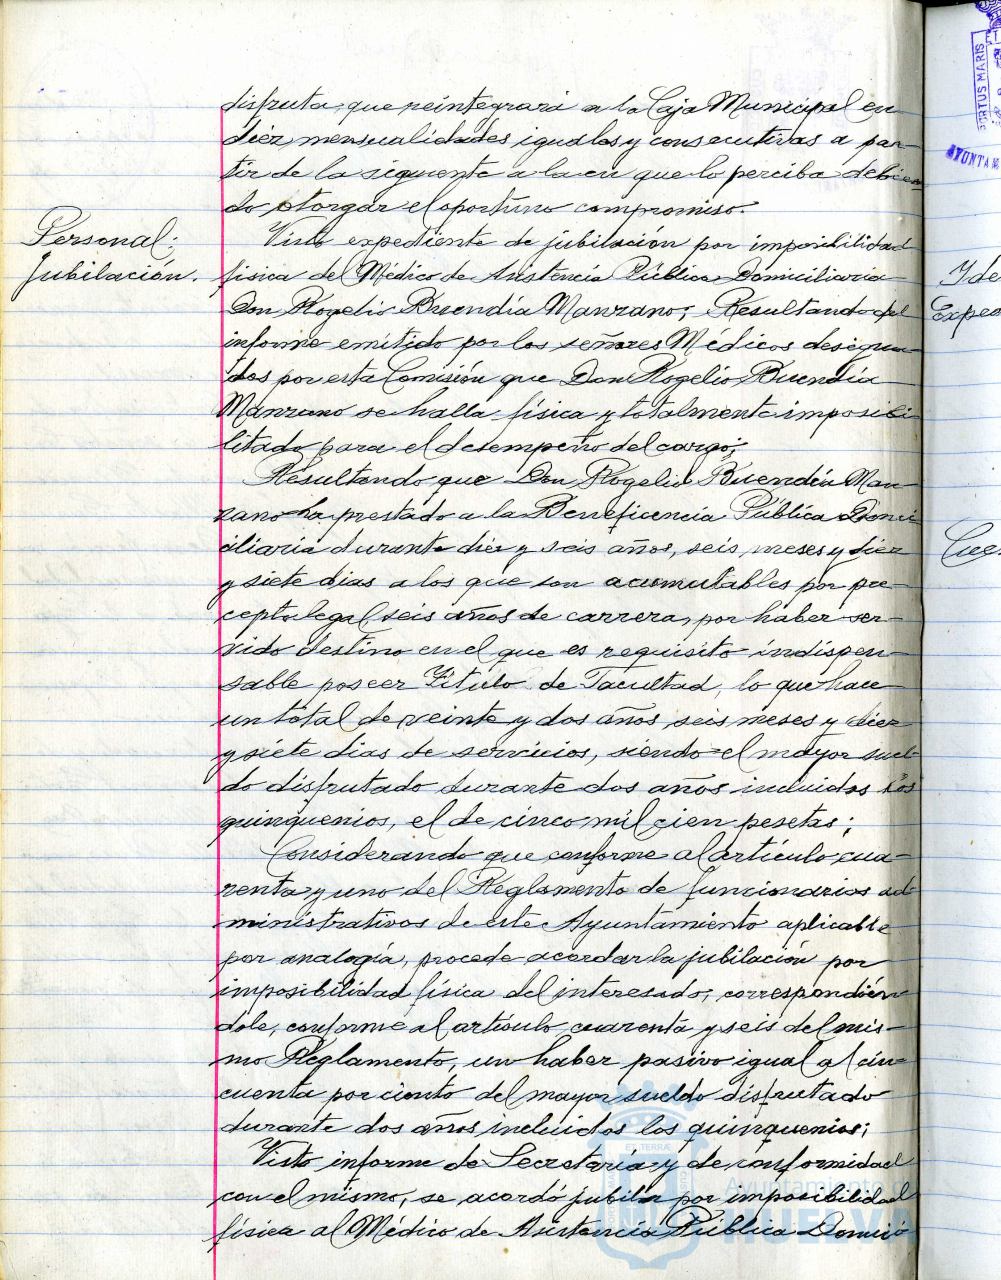 disfruta, que reintegrará a la Caja Municipal en
diez mensualidades iguales y consecutivas a par-
tir de la siguiente a la en que lo perciba debien-
do otorgar el oportuno compromiso.
Personal:
Jubilación.
Visto expediente de jubilación por imposibilidad
física del Médico de Asistencia Pública Domiciliaria
Don Rogelio Buendía Manzano; Resultando del
informe emitido por los señores Médicos designa-
dos por esta Comisión que Don Rogelio Buendía
Manzano se halla física y totalmente imposibi-
litado para el desempeño del cargo;
Resultando que Don Rogelio Buendía Man-
zano ha prestado a la Beneficencia Pública Domi-
ciliaria durante diez y seis años, seis meses y diez
y siete dias a los que son acumutables por pre-
cepto legal, seis años de carrera, por haber ser-
vido destino en el que es requisito indispen-
sable poseer Título de Facultad, lo que hace
un total de veinte y dos años, seis meses y diez
y siete dias de servicios, siendo el mayor suel-
do disfrutado durante dos años incluidos los
quinquenios, el de cinco mil cien pesetas;
Considerando que conforme al artículo cua-
renta y uno del Reglamento de funcionarios ad-
ministrativos de este Ayuntamiento aplicable
por analogía, procede acordar la jubilación por
imposibilidad física del interesado, correspondién-
dole, conforme al artículo cuarenta y seis del mis-
mo Reglamento, un haber pasivo igual al cin-
cuenta por ciento del mayor sueldo disfrutado
durante dos años incluidos los quinquenios;
Visto informe de Secretaría y de conformidad
con el mismo, se acordó jubilar por imposibilidad
física al Médico de Asistencia Pública Domici-
Ayuntamiento de
HUELVA
PORTUS MARIS
AYUNTAM
Y de
Exped